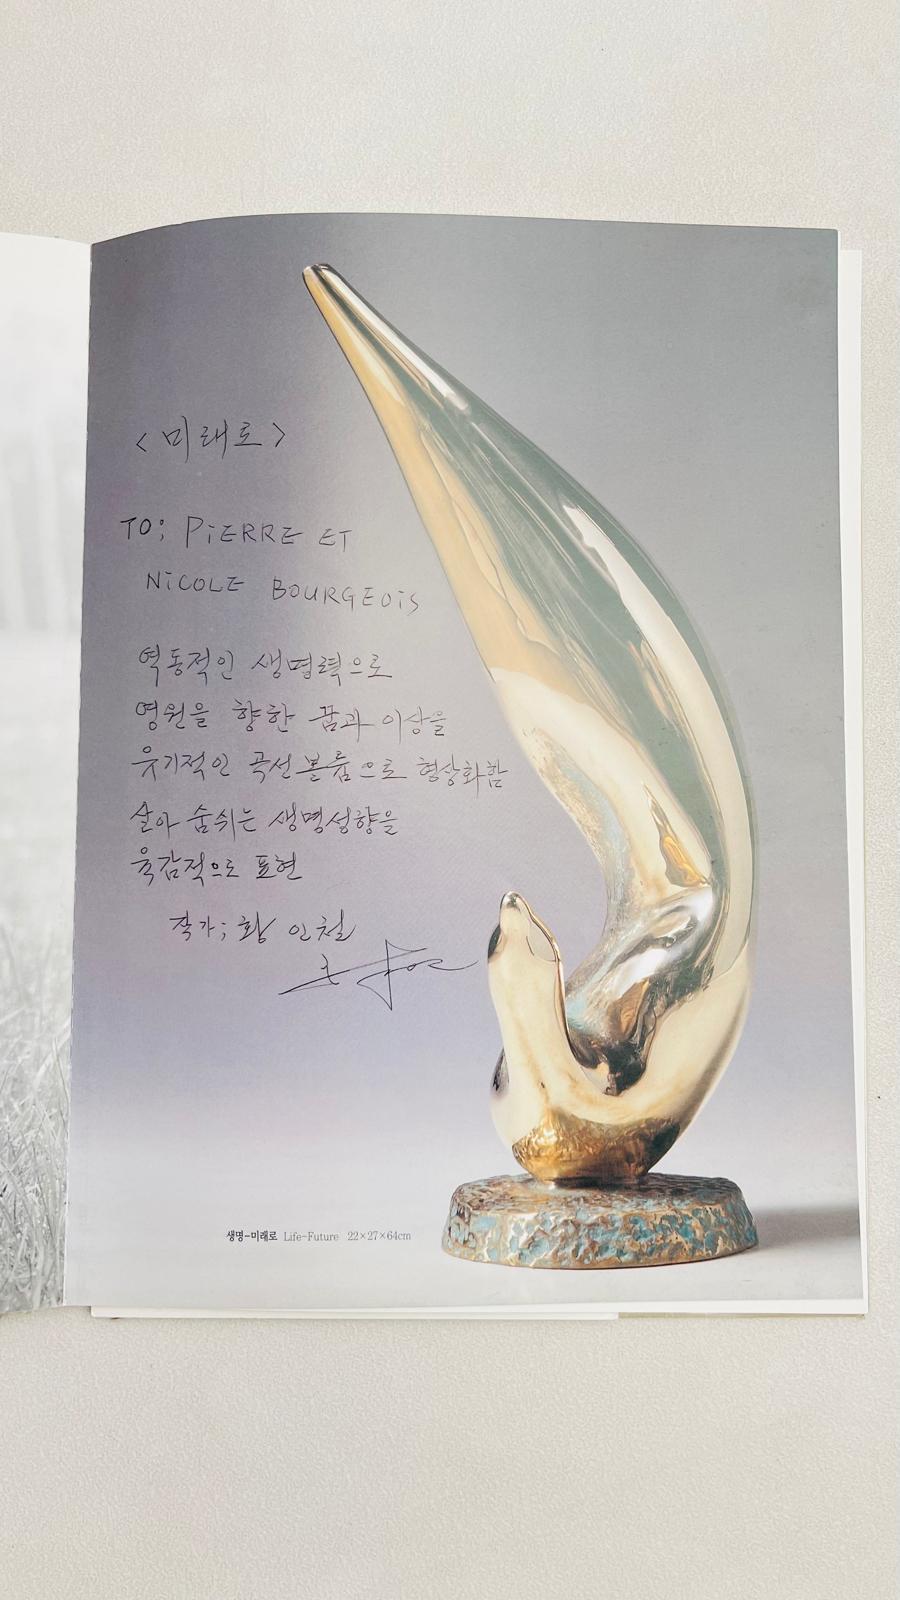 <미래로>
TO; PiERRE ET
NiCOLE BOURGEOiS
역동적인 생명력으로
영원을 향한 꿈과 이상을
유기적인 곡선 볼륨으로 형상화함
살아 숨쉬는 생명성향을
육감적으로 표현
작가; 황 인철
생명-미래로 Life-Future 22×27×64cm